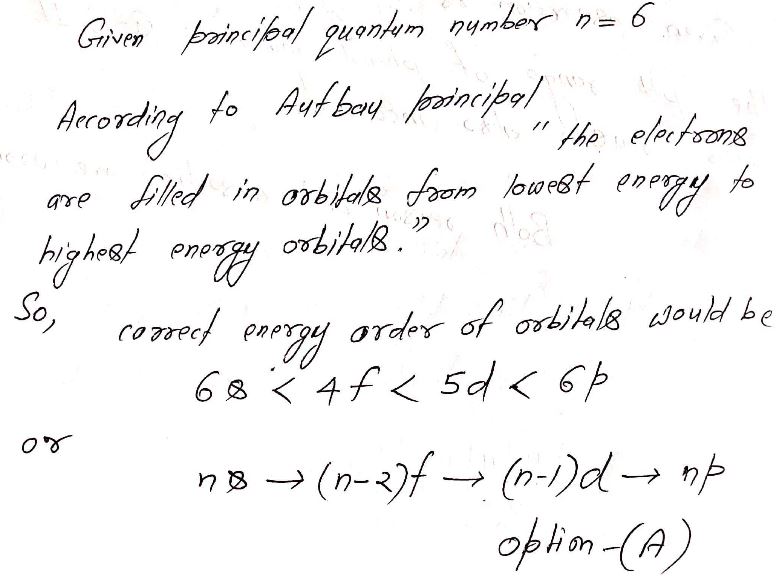 Given principal quantum number n = 6
According to Aufbau principal "the electrons
are filled in orbitals from lowest energy to
highest energy orbitals."
So,
correct energy order of orbitals would be
6s < 4f < 5d < 6p
or
ns → (n-2)f → (n-1)d → np
option-(A)